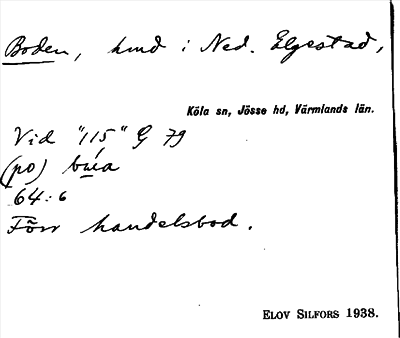 Boden, hmd i Ned. Elgestad,
Köla sn, Jösse hd, Värmlands län.
Vid "115" G 79
(po) búa
64:6
Förr handelsbod.
ELOV SILFORS 1938.